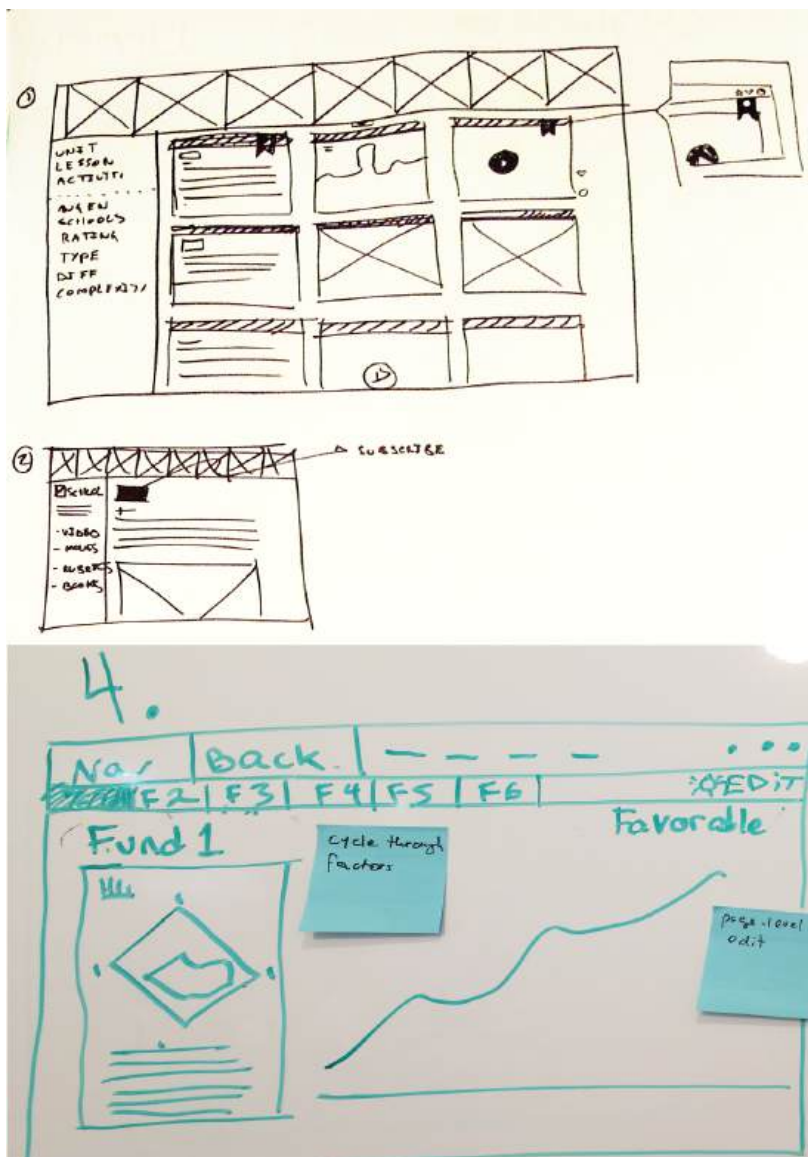 1
UNIT
LESSON
ACTIVITI
SCHOOLS
RATING
TYPE
DIFF
COMPLEXITY
2
SUBSCRIBE
SCHOOL
- VIDEO
- RUBRICS
- BOOKS
4.
Nav Back
F2 F3 F4 F5 F6 EDiT
Fund 1
Favorable
cycle through
factors
page-level
edit